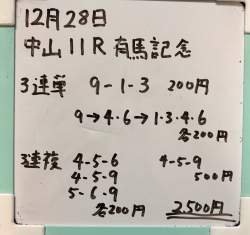 12月28日
中山11R 有馬記念
3連単 9-1-3 200円
9→4・6→1・3・4・6
各200円
3連複 4-5-6 4-5-9
4-5-9 500円
5-6-9
各200円 2,500円